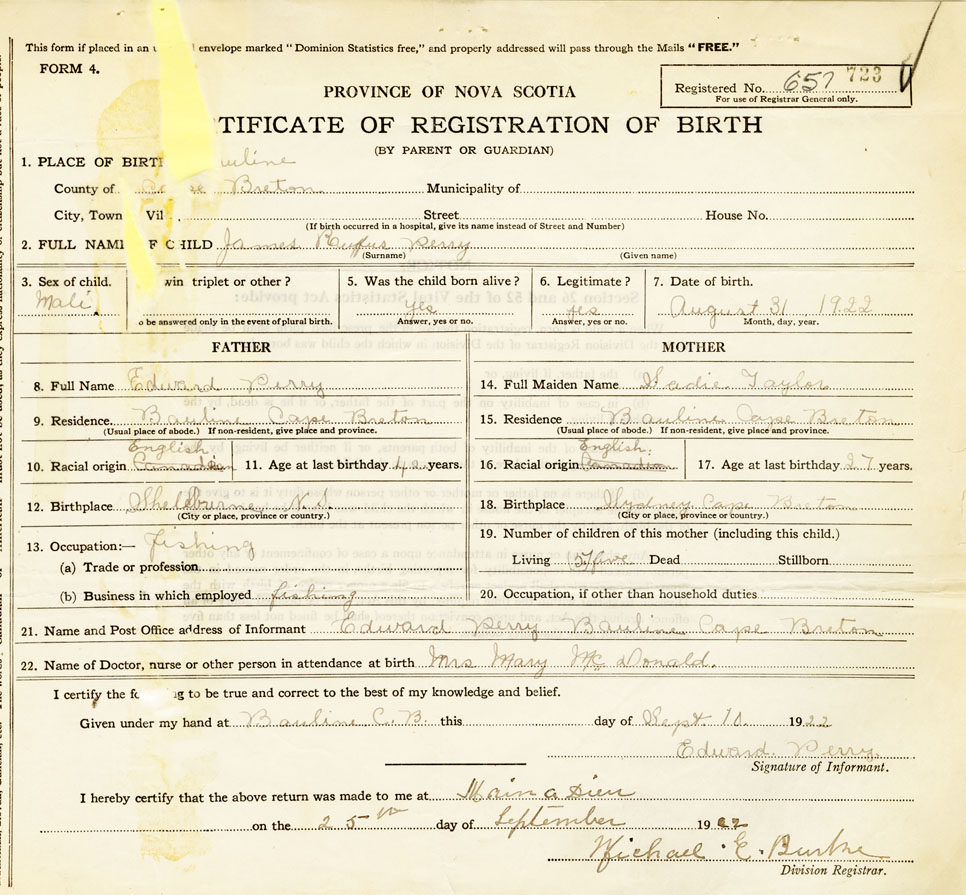 This form if placed in an envelope marked "Dominion Statistics free," and properly addressed will pass through the Mails "FREE."
FORM 4.
Registered No. 657 723
For use of Registrar General only.
PROVINCE OF NOVA SCOTIA
TIFICATE OF REGISTRATION OF BIRTH
(BY PARENT OR GUARDIAN)
1. PLACE OF BIRT auline
County of Cape Breton Municipality of
City, Town Vil Street House No.
(If birth occurred in a hospital, give its name instead of Street and Number)
2. FULL NAM F CHILD James Rufus Perry
(Surname) (Given name)
3. Sex of child. Male.
win triplet or other?
o be answered only in the event of plural birth.
5. Was the child born alive? yes
Answer, yes or no.
6. Legitimate? yes
Answer, yes or no.
7. Date of birth. August 31 1922
Month, day, year.
FATHER
8. Full Name Edward Perry
9. Residence Bauline Cape Breton
(Usual place of abode.) If non-resident, give place and province.
English.
10. Racial origin Canadian 11. Age at last birthday 42 years.
12. Birthplace Shelburne N.S.
(City or place, province or country.)
13. Occupation:— fishing
(a) Trade or profession
(b) Business in which employed fishing
MOTHER
14. Full Maiden Name Sadie Taylor
15. Residence Bauline Cape Breton
(Usual place of abode.) If non-resident, give place and province.
English.
16. Racial origin Canadian 17. Age at last birthday 27 years.
18. Birthplace Sydney Cape Breton
(City or place, province or country.)
19. Number of children of this mother (including this child.)
Living (5) five Dead Stillborn
20. Occupation, if other than household duties
21. Name and Post Office address of Informant Edward Perry Bauline Cape Breton
22. Name of Doctor, nurse or other person in attendance at birth Mrs Mary McDonald.
I certify the fo ng to be true and correct to the best of my knowledge and belief.
Given under my hand at Bauline C.B. this day of Sept. 10. 1922
Edward Perry
Signature of Informant.
I hereby certify that the above return was made to me at Main a Dieu
on the 25th day of September 1922
Michael E. Burke
Division Registrar.